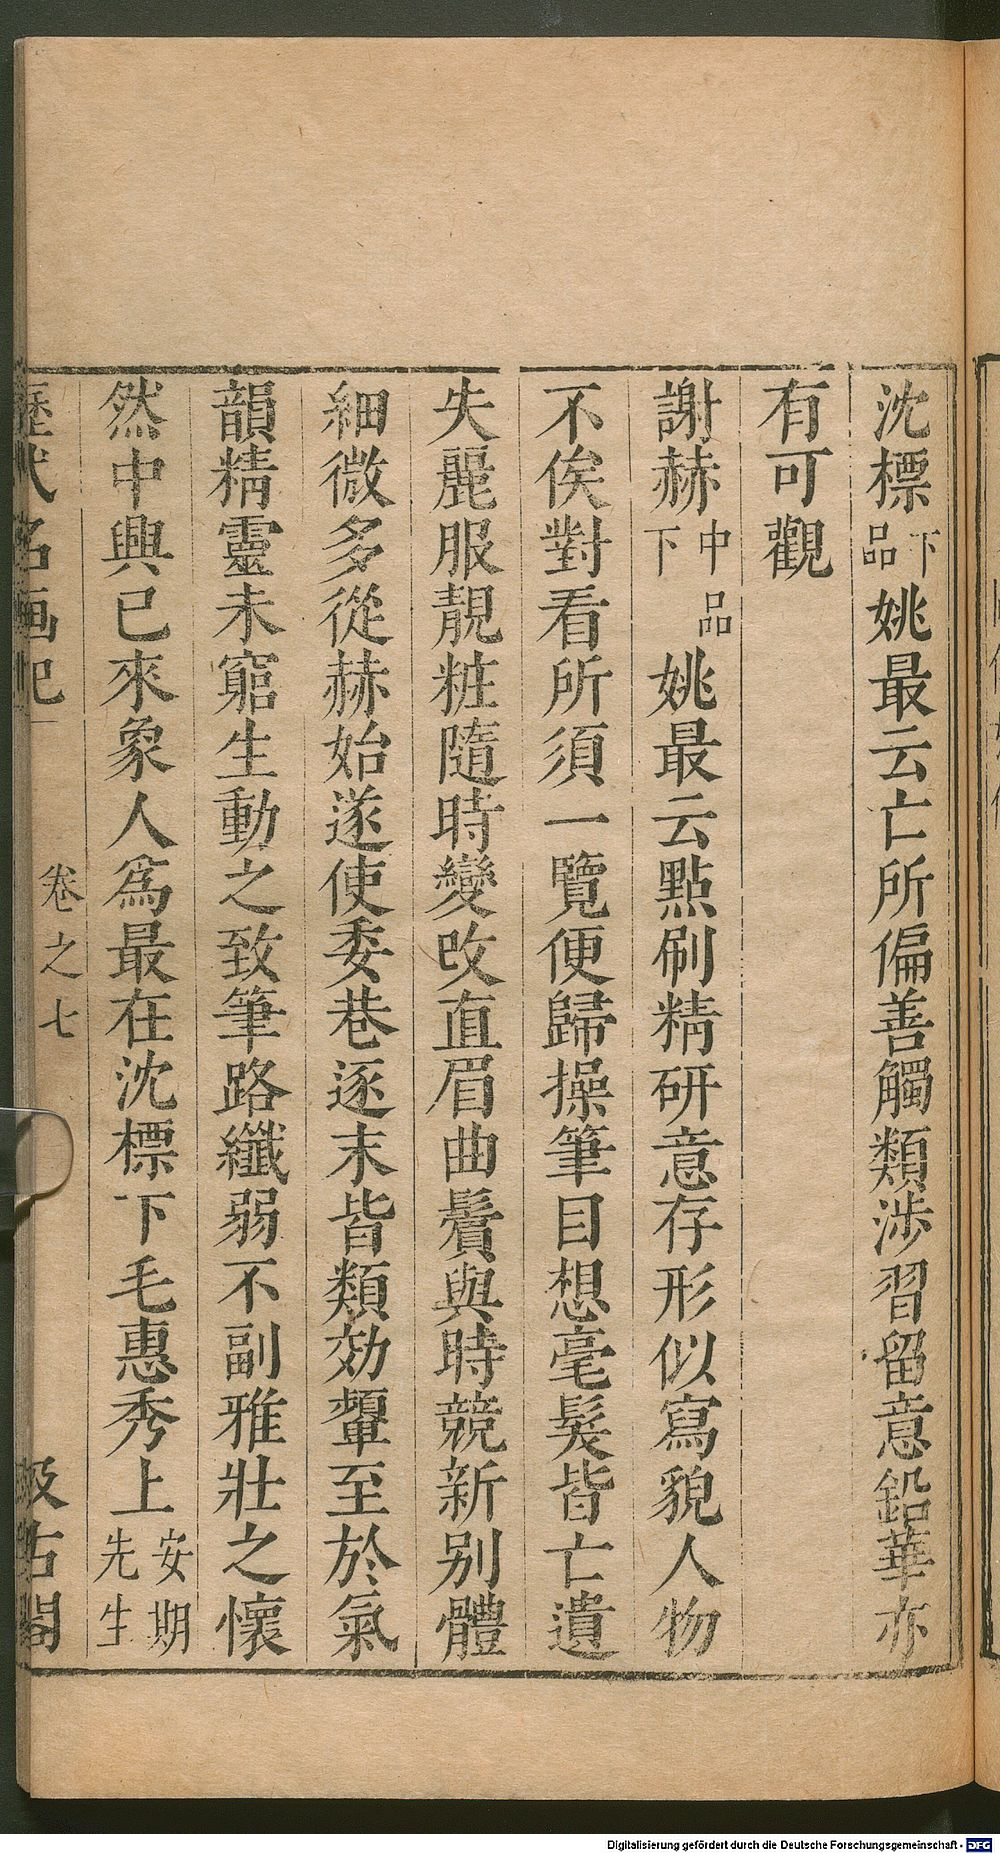 沈標下品姚最云亡所偏善觸類涉習留意鉛華亦
有可觀
謝赫中品下姚最云點刷精研意存形似寫貌人物
不俟對看所須一覽便歸操筆目想毫髮皆亡遺
失麗服靚粧隨時變改直眉曲鬢與時競新别體
細微多從赫始遂使委巷逐末皆類効顰至於氣
韻精靈未窮生動之致筆路纖弱不副雅壯之懷
然中興已來象人爲最在沈標下毛惠秀上安期先生
歷代名画記
卷之七
汲古閣
Digitalisierung gefördert durch die Deutsche Forschungsgemeinschaft - DFG